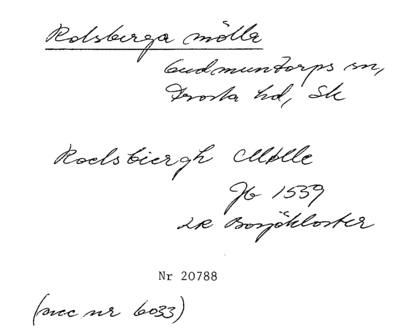 Rolsberga mölla
Gudmuntorps sn,
Frosta hd, Sk
Roelsbiergh Mølle
Jb 1559
LR Bosjökloster
Nr 20788
(acc nr 6033)